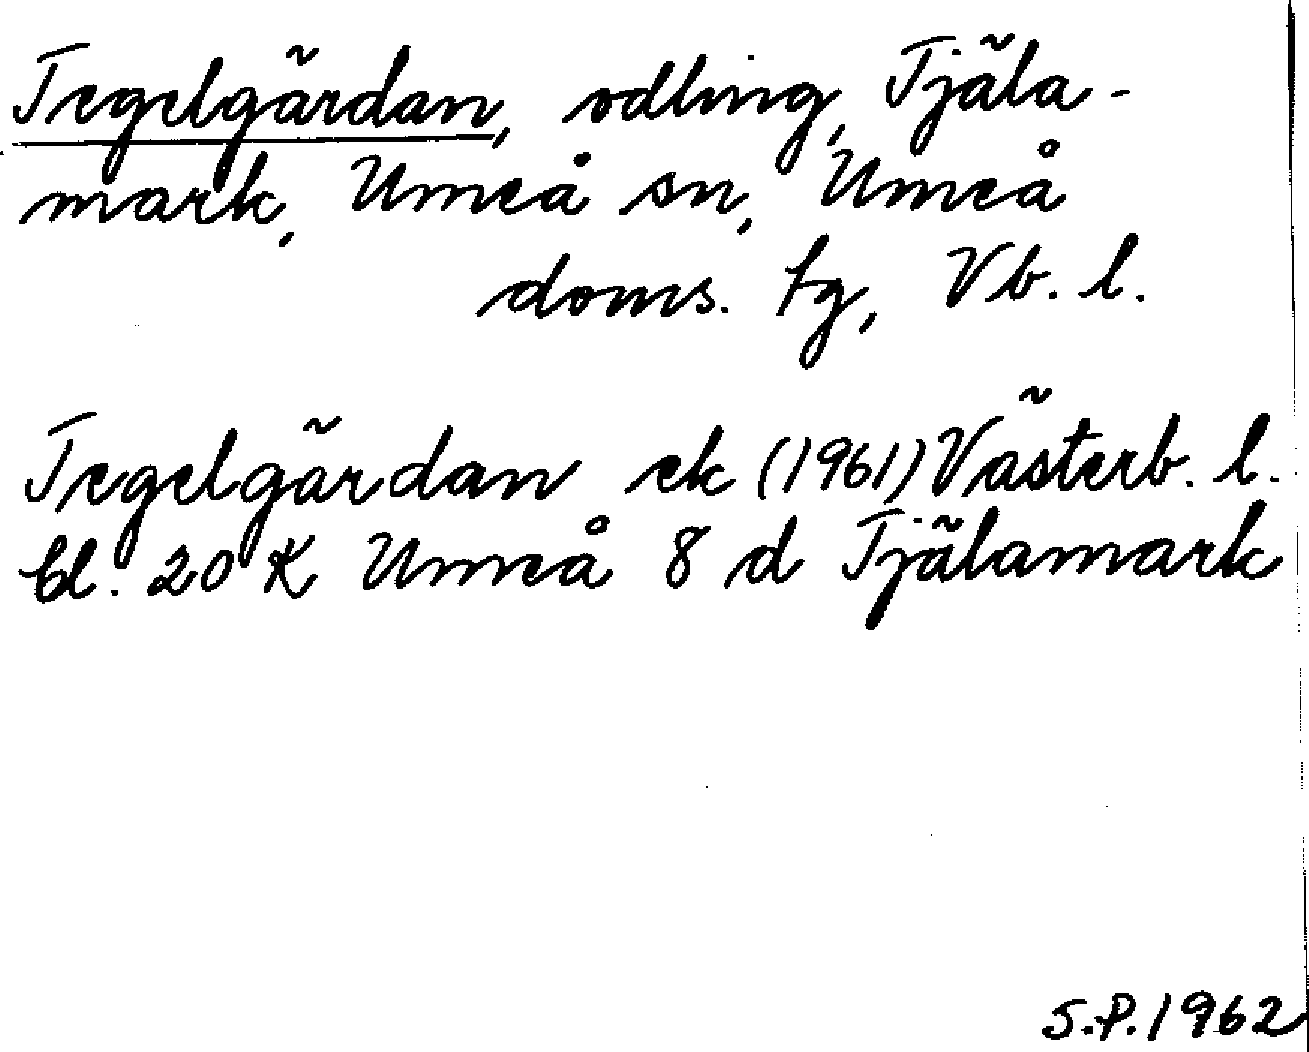 Tegelgärdan, odling, Tjäla-
mark, Umeå sn, Umeå
doms. tg, Vb. l.
Tegelgärdan ek (1961) Västerb. l.
bl. 20 K Umeå 8 d Tjälamark
S.P. 1962